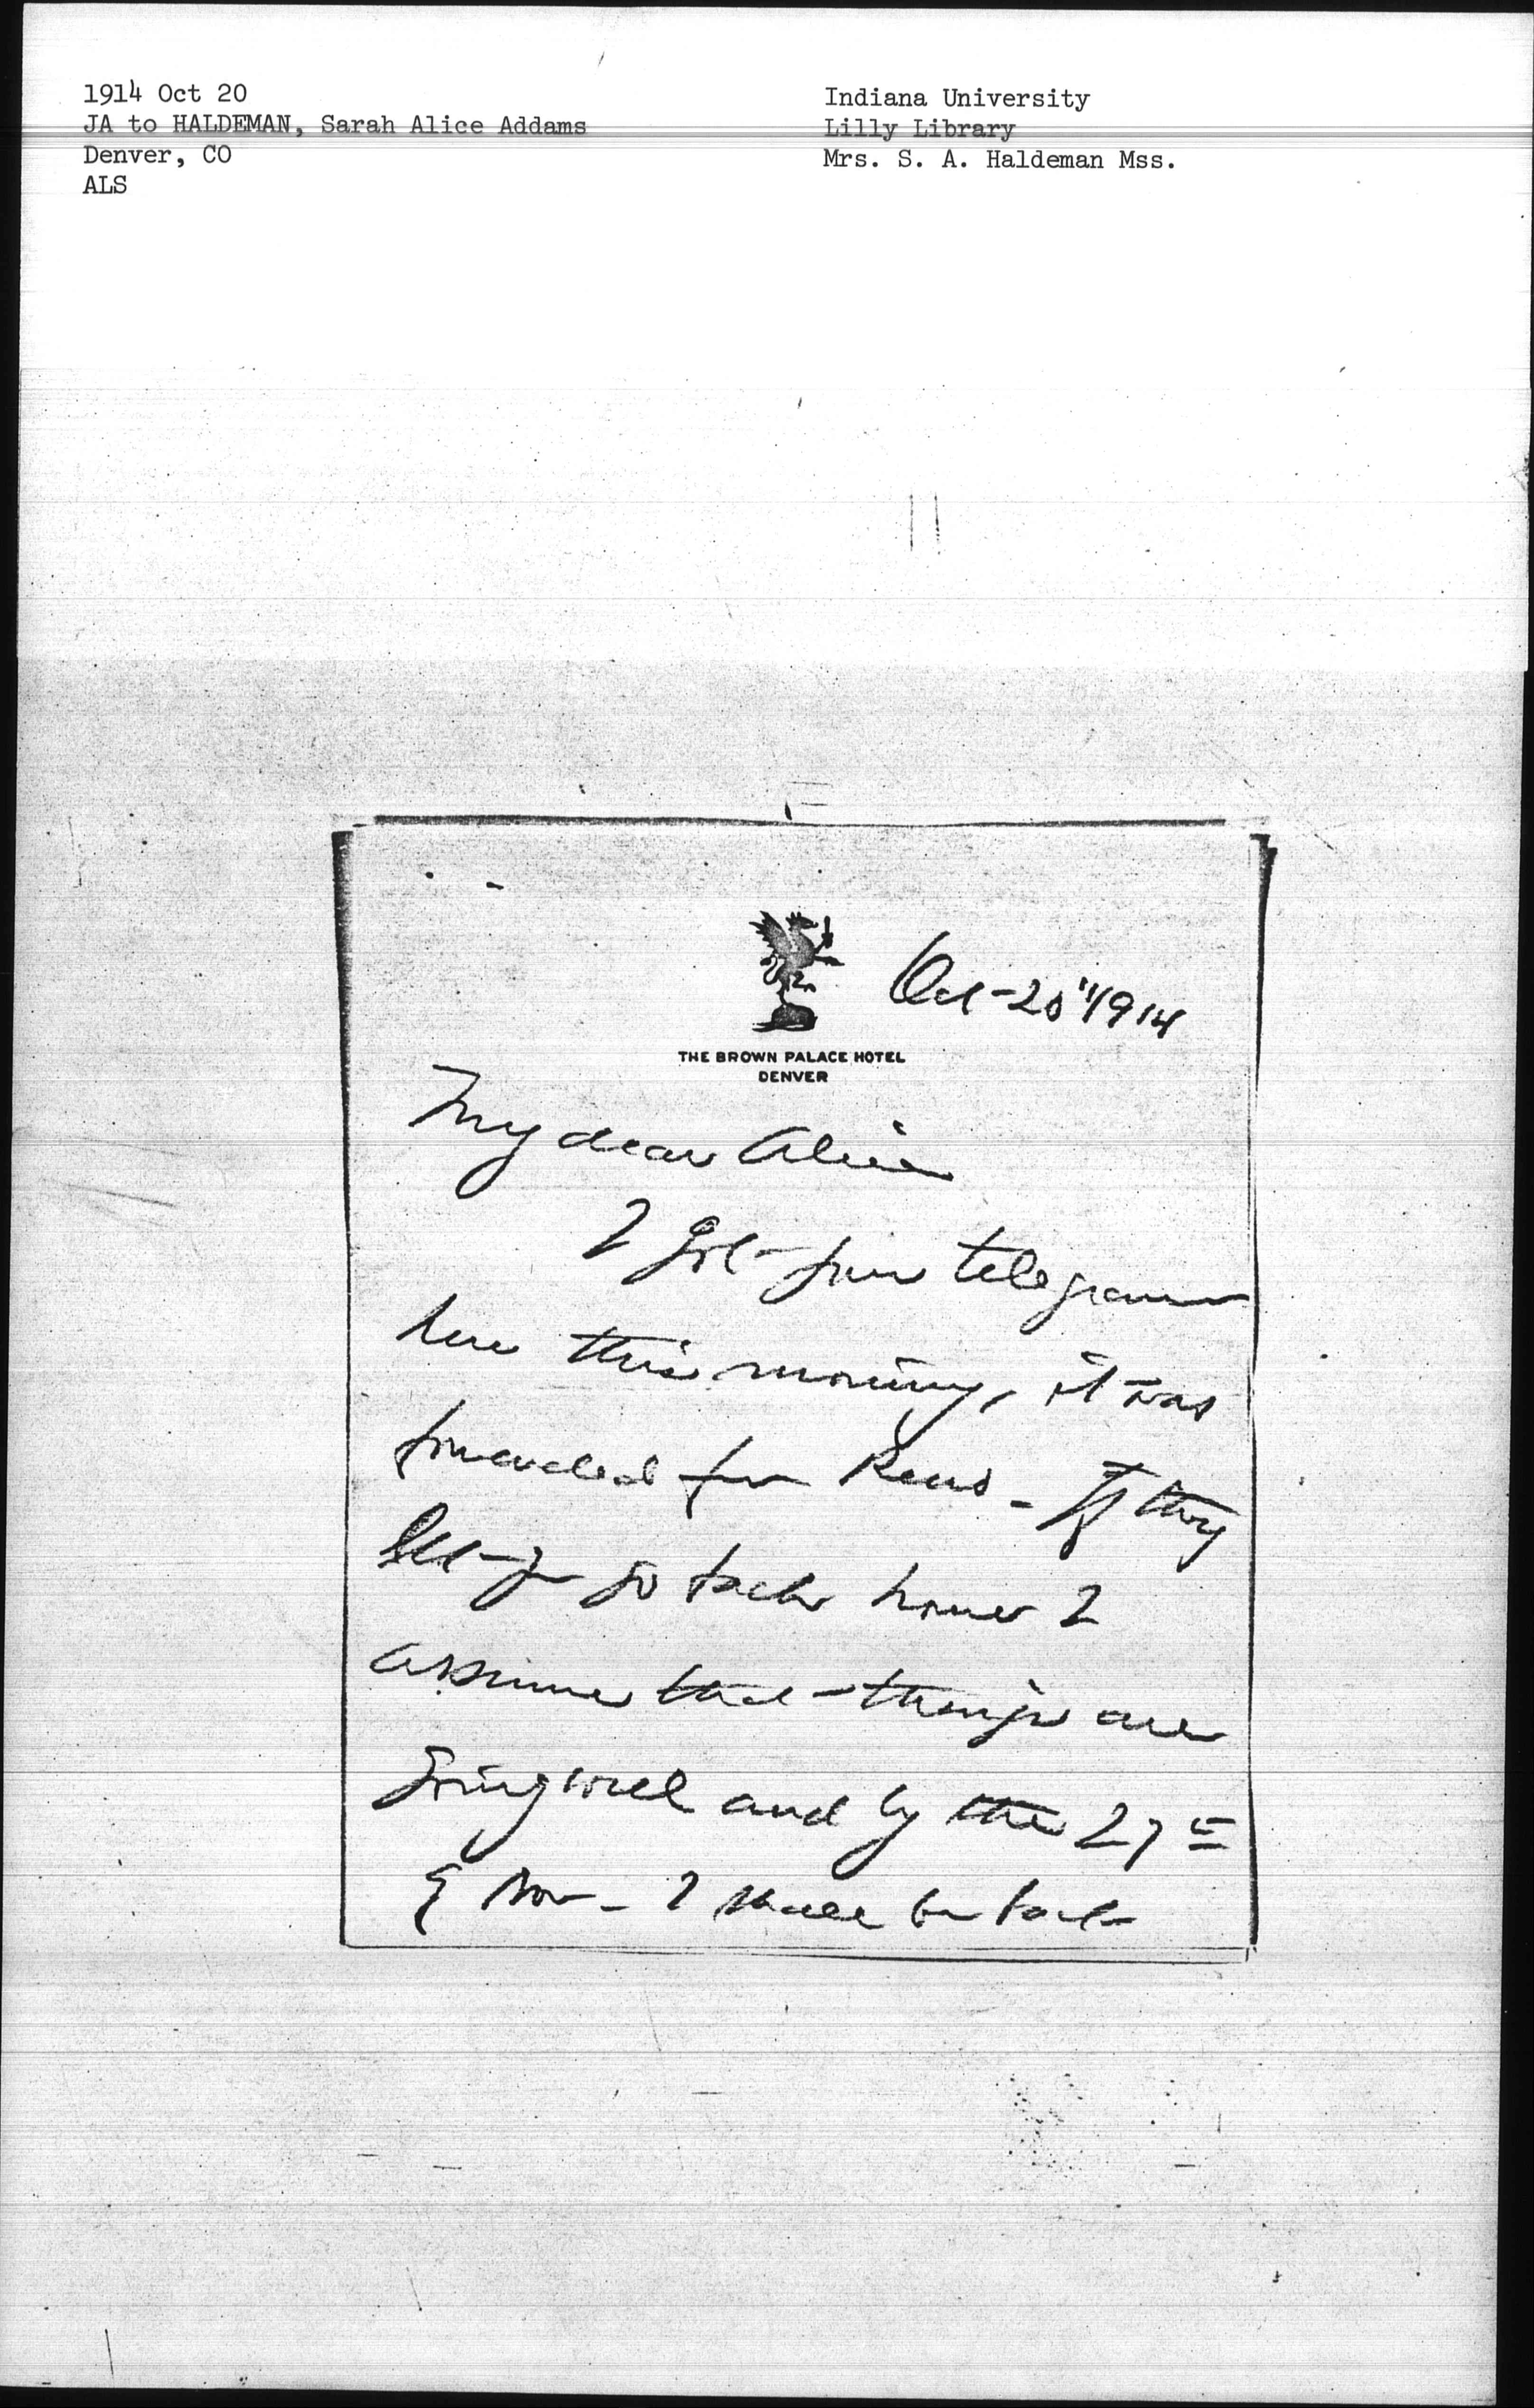 1914 Oct 20
JA to HALDEMAN, Sarah Alice Addams
Denver, CO
ALS
Indiana University
Lilly Library
Mrs. S. A. Haldeman Mss.
Oct-20"1914
THE BROWN PALACE HOTEL
DENVER
My dear Alice
I got your telegram
here this morning, it was
forwarded from Reno - If they
let you go back home I
assume that things are
going well and by the 27th
of Nov - I shall be back